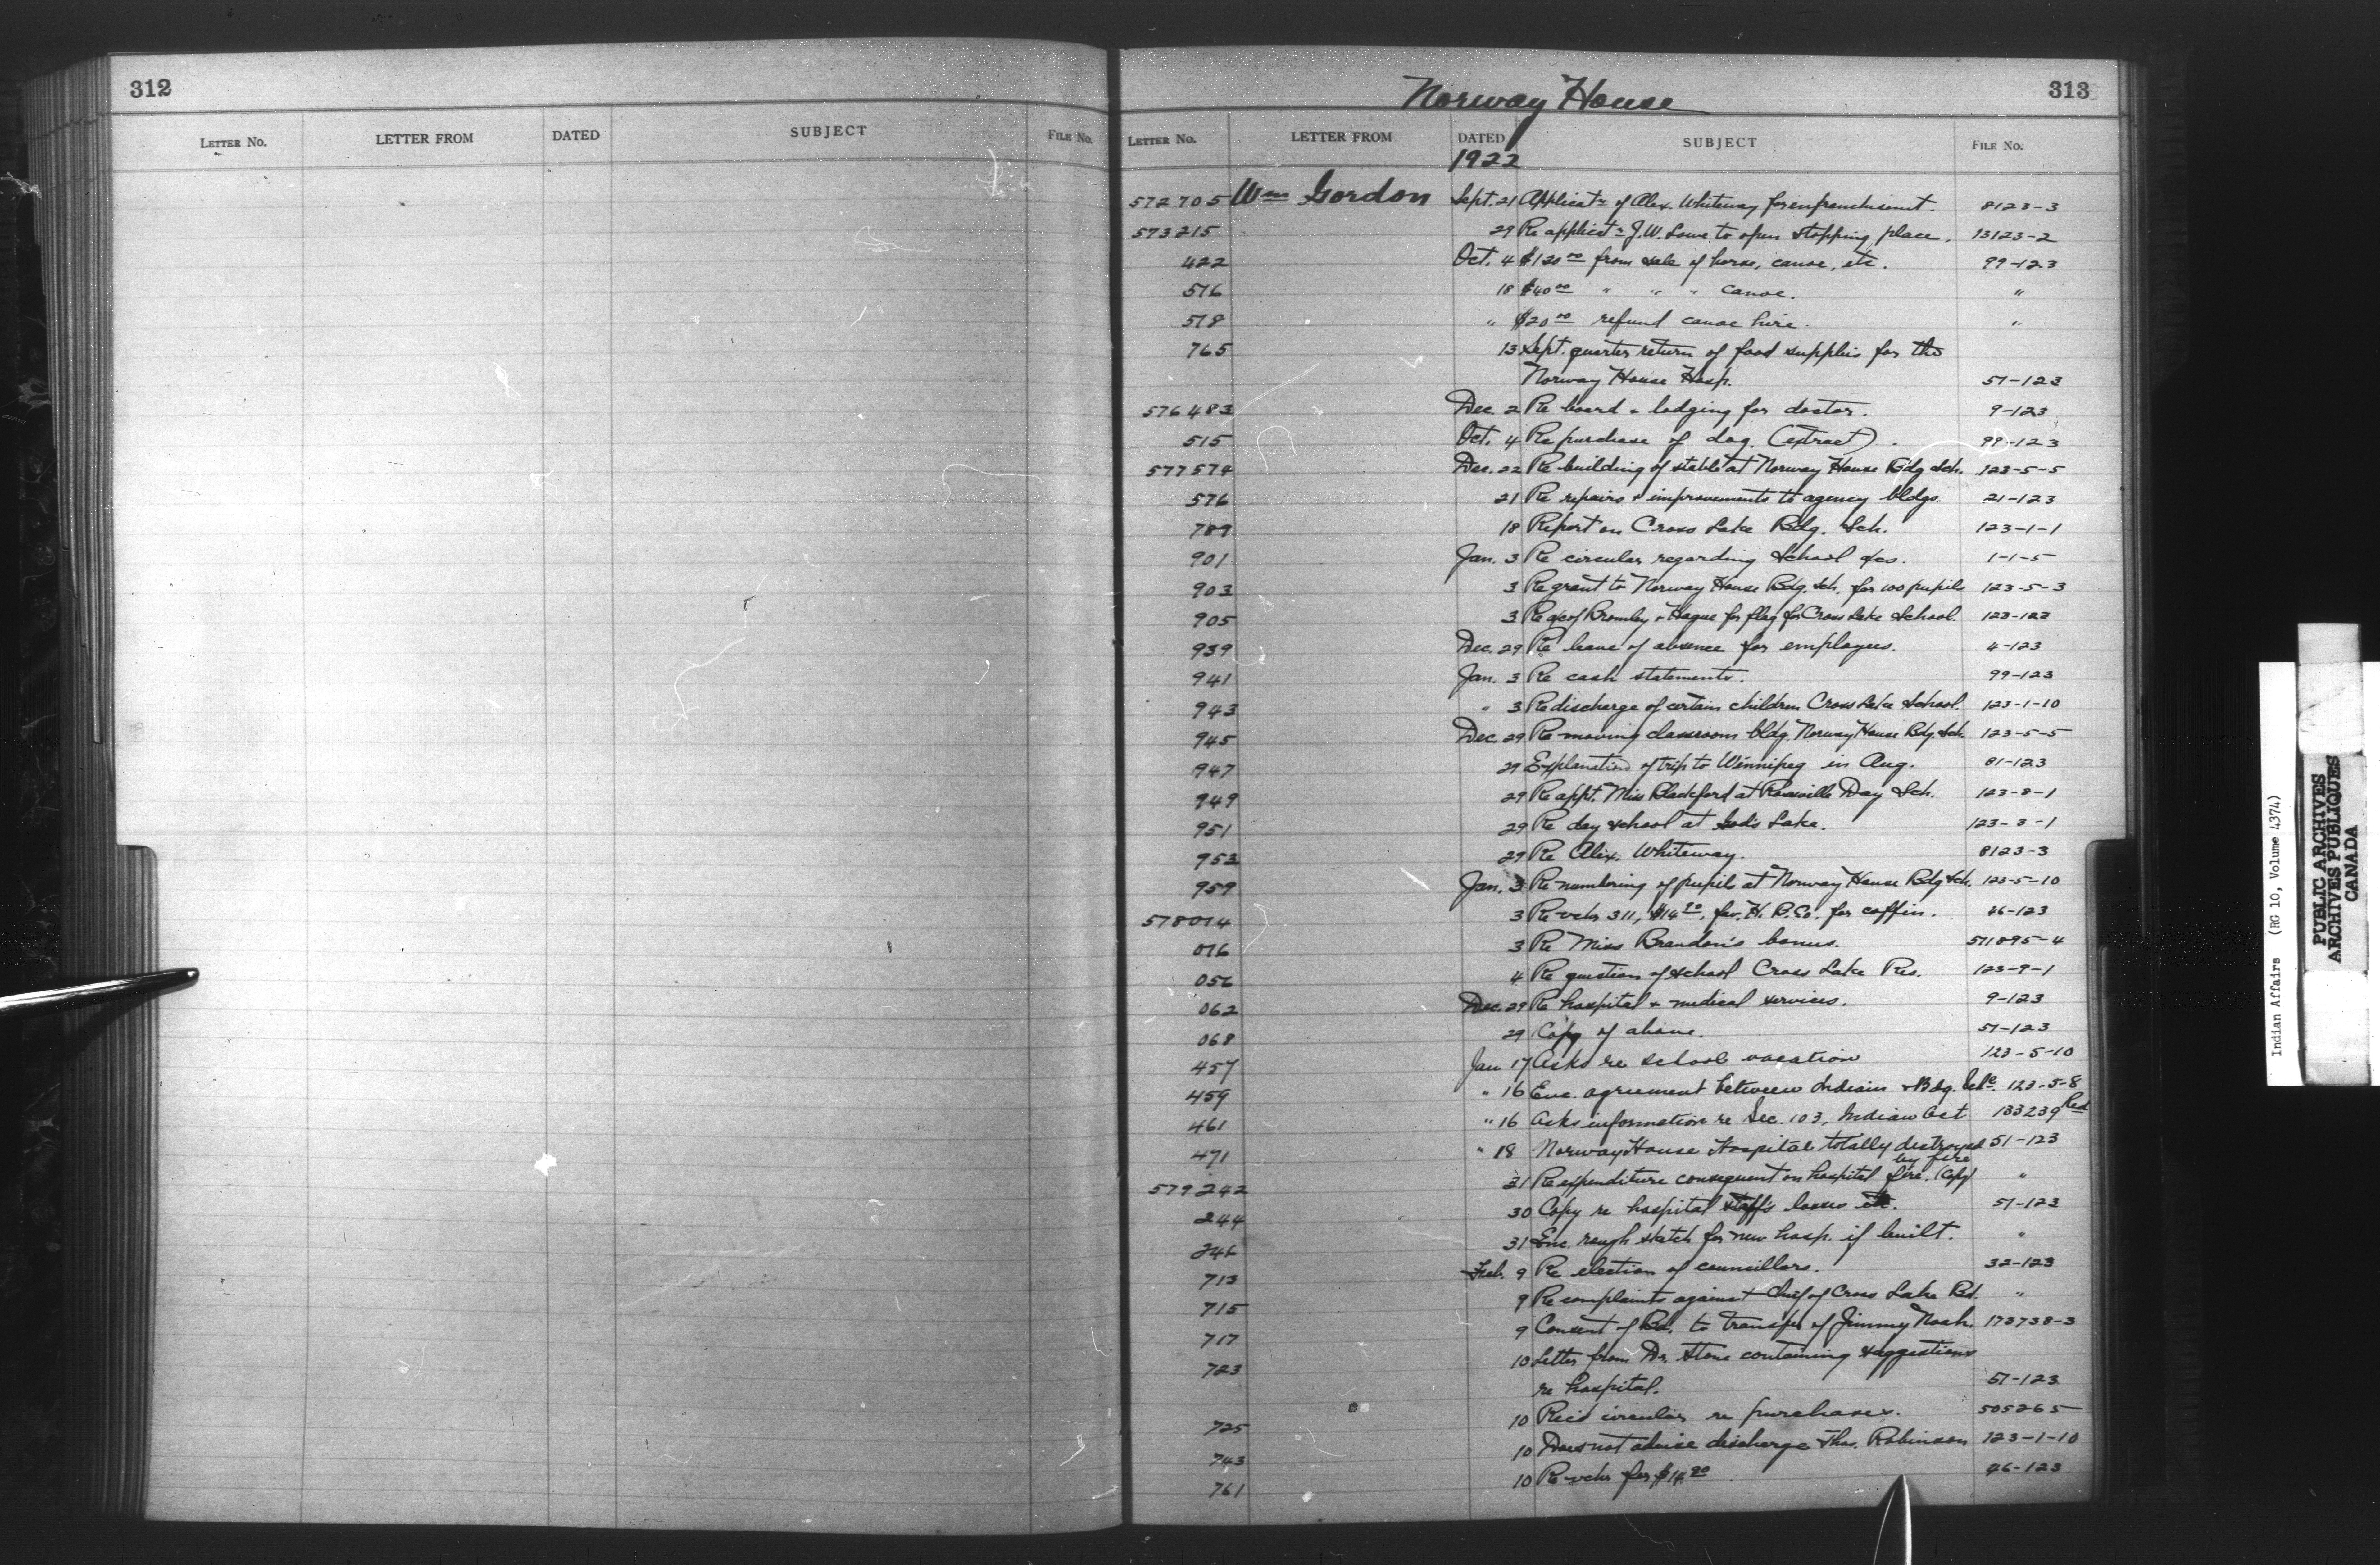 312
LETTER No. LETTER FROM DATED SUBJECT FILE No.
Norway House 313
LETTER No. LETTER FROM DATED SUBJECT FILE No.
1922
572705 Wm Gordon Sept. 21 Applicatn of Alex. Whiteway for enfranchisement. 8123-3
573215 29 Re applicatn J.W. Lowe to open stopping place. 13123-2
422 Oct. 4 $120.00 from sale of horse, canoe, etc. 99-123
576 18 $40.00 " " " canoe. "
578 " $20.00 refund canoe hire. "
765 13 Sept. quarter return of food supplies for the
Norway House Hosp. 51-123
576483 Dec. 2 Re board & lodging for doctor. 9-123
515 Oct. 4 Re purchase of dog. (extract). 99-123
577574 Dec. 22 Re building of stable at Norway House Bdg Sch. 123-5-5
576 21 Re repairs & improvements to agency bldgs. 21-123
789 18 Report on Cross Lake Bdg. Sch. 123-1-1
901 Jan. 3 Re circular regarding School a/cs. 1-1-5
903 3 Re grant to Norway House Bdg. Sch. for 100 pupils 123-5-3
905 3 Re a/c of Bromley & Hague for flag for Cross Lake School. 123-123
939 Dec. 29 Re leave of absence for employees. 4-123
941 Jan. 3 Re cash statements. 99-123
943 " 3 Re discharge of certain children Cross Lake School. 123-1-10
945 Dec. 29 Re moving classroom bldg. Norway House Bdg. Sch. 123-5-5
947 29 Explanation of trip to Winnipeg in Aug. 81-123
949 29 Re appt. Miss Blackford at Rossville Day Sch. 123-8-1
951 29 Re day school at God's Lake. 123-3-1
953 29 Re Alex. Whiteway. 8123-3
959 Jan. 3 Re numbering of pupils at Norway House Bdg Sch. 123-5-10
578014 3 Re vchr 311, $14.90, fav. H.B.Co. for coffin. 46-123
016 3 Re Miss Brandon's bonus. 511895-4
056 4 Re question of school Cross Lake Res. 123-9-1
062 Dec. 29 Re hospital & medical services. 9-123
068 29 Copy of above. 51-123
457 Jan 17 Asks re school vacation 123-5-10
459 " 16 Enc. agreement between Indians & Bdg. Schl. 123-5-8
461 " 16 Asks information re Sec. 103, Indian Act 133239 Red
471 " 18 Norway House Hospital totally destroyed 51-123
by fire
579242 31 Re expenditure consequent on hospital fire. (Copy) "
244 30 Copy re hospital staff's losses etc. 51-123
246 31 Enc. rough sketch for new hosp. if built. "
713 Feb. 9 Re election of councillors. 32-123
715 9 Re complaints against Chief of Cross Lake Bd. "
717 9 Consent of Bd. to transfer of Jimmy Noah. 173738-3
723 10 Letter from Dr. Stone containing suggestions
re hospital. 51-123
725 10 Rec'd circular re purchases. 505265
743 10 Does not advise discharge Thos. Robinson 123-1-10
761 10 Re vchr for $14.90 46-123
Indian Affairs (RG 10, Volume 4374)
PUBLIC ARCHIVES
ARCHIVES PUBLIQUES
CANADA